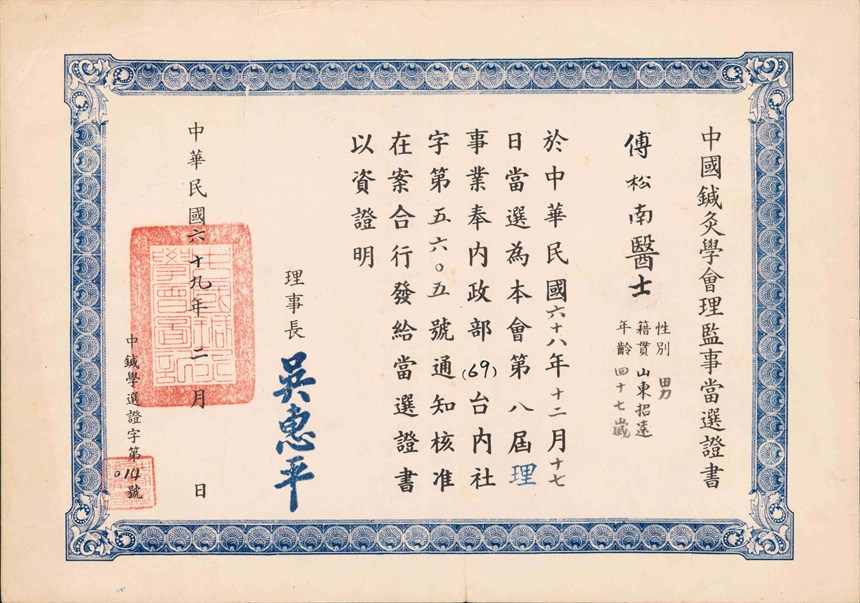 中國鍼灸學會理監事當選證書
傅松南醫士
性別 男
籍貫 山東招遠
年齡 四十七歲
於中華民國六十八年十二月十七
日當選為本會第八屆理
事業奉內政部(69)台內社
字第五六○五號通知核准
在案合行發給當選證書
以資證明
理事長 吳惠平
中華民國六十九年二月 日
中鍼學選證字第014號